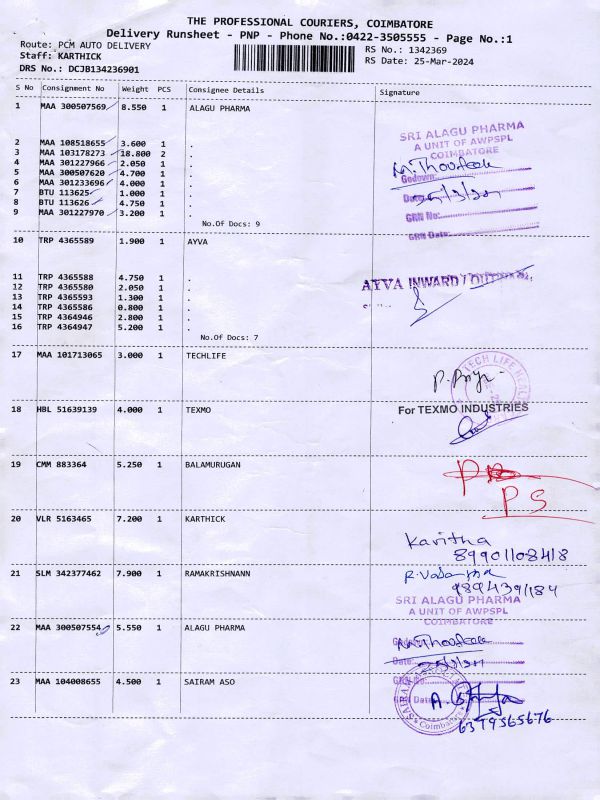 THE PROFESSIONAL COURIERS, COIMBATORE
Delivery Runsheet - PNP - Phone No.:0422-3505555 - Page No.:1
Route: PCM AUTO DELIVERY RS No.: 1342369
Staff: KARTHICK RS Date: 25-Mar-2024
DRS No.: DCJB134236901
S No Consignment No Weight PCS Consignee Details Signature
1 MAA 300507569 8.550 1 ALAGU PHARMA
SRI ALAGU PHARMA
A UNIT OF AWPSPL
COIMBATORE
2 MAA 108518655 3.600 1 .
3 MAA 103178273 18.800 2 .
4 MAA 301227966 2.050 1 .
5 MAA 300507620 4.700 1 .
Godown
6 MAA 301233696 4.000 1 .
7 BTU 113625 1.000 1 .
Date
8 BTU 113626 4.750 1 .
9 MAA 301227970 3.200 1 .
GRN No:
No.Of Docs: 9
GRN Date:
10 TRP 4365589 1.900 1 AYVA
11 TRP 4365588 4.750 1 .
12 TRP 4365580 2.050 1 .
AYVA INWARD / OUTWARD
13 TRP 4365593 1.300 1 .
14 TRP 4365586 0.800 1 .
15 TRP 4364946 2.800 1 .
16 TRP 4364947 5.200 1 .
No.Of Docs: 7
17 MAA 101713065 3.000 1 TECHLIFE
TECH LIFE
P. Priya
18 HBL 51639139 4.000 1 TEXMO
For TEXMO INDUSTRIES
19 CMM 883364 5.250 1 BALAMURUGAN
PS
20 VLR 5163465 7.200 1 KARTHICK
Kavitha
89901108418
21 SLM 342377462 7.900 1 RAMAKRISHNANN
9894391184
SRI ALAGU PHARMA
A UNIT OF AWPSPL
COIMBATORE
22 MAA 300507554 5.550 1 ALAGU PHARMA
Date
23 MAA 104008655 4.500 1 SAIRAM ASO
GRN No:
GRN Date
SAIRAM
Coimbatore
6379565676